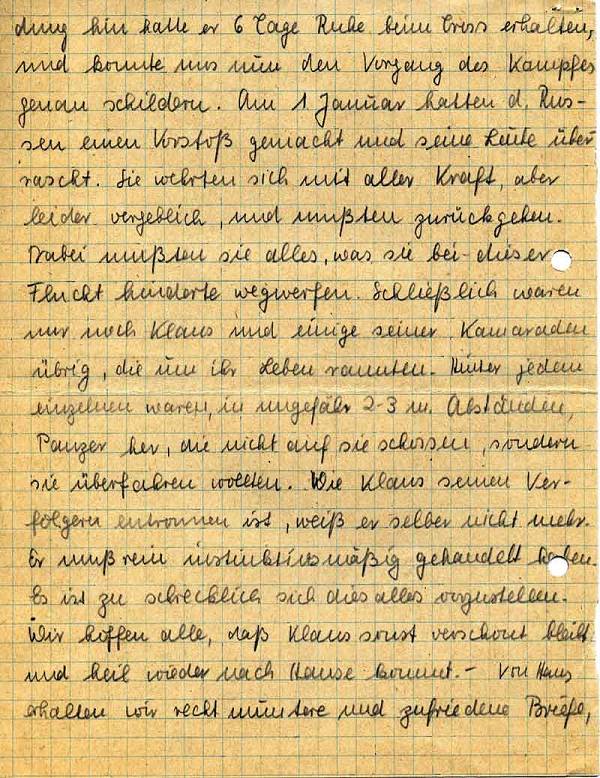 dung hin hatte er 6 Tage Ruhe beim Tross erhalten,
und konnte uns nun den Vorgang des Kampfes
genau schildern. Am 1 Januar hatten d. Rus-
sen einen Vorstoß gemacht und seine Leute über
rascht. Sie wehrten sich mit aller Kraft, aber
leider vergeblich, und mußten zurückgehen.
Dabei mußten sie alles, was sie bei dieser
Flucht hinderte wegwerfen. Schließlich waren
nur noch Klaus und einige seiner Kamaraden
übrig, die um ihr Leben rannten. Hinter jedem
einzelnen waren, in ungefähr 2-3 m. Abständen,
Panzer her, die nicht auf sie schossen, sondern
sie überfahren wollten. Wie Klaus seinen Ver-
folgern entronnen ist, weiß er selber nicht mehr.
Er muß rein instinktivsmäßig gehandelt haben.
Es ist zu schrecklich sich dies alles vorzustellen.
Wir hoffen alle, daß Klaus sonst verschont bleibt
und heil wieder nach Hause kommt. – Von Hans
erhalten wir recht muntere und zufriedene Briefe,